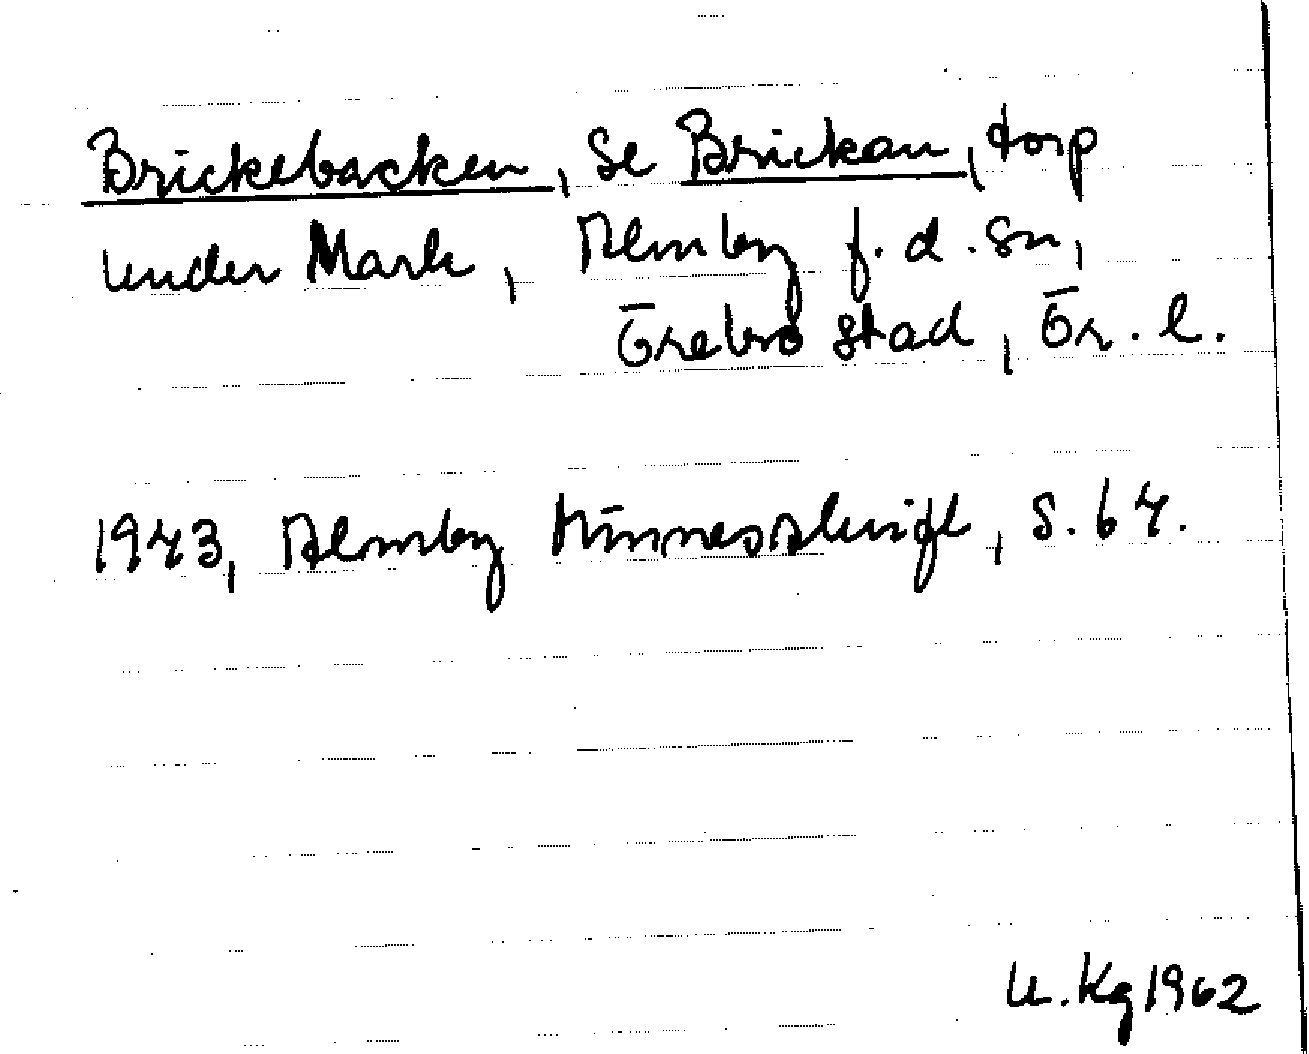 Brickebacken, se Brickan, torp
under Mark, Almby f.d. sn,
Örebro stad, Ör. l.
1943, Almby Minnesskrift, s. 64.
U. Kg 1962